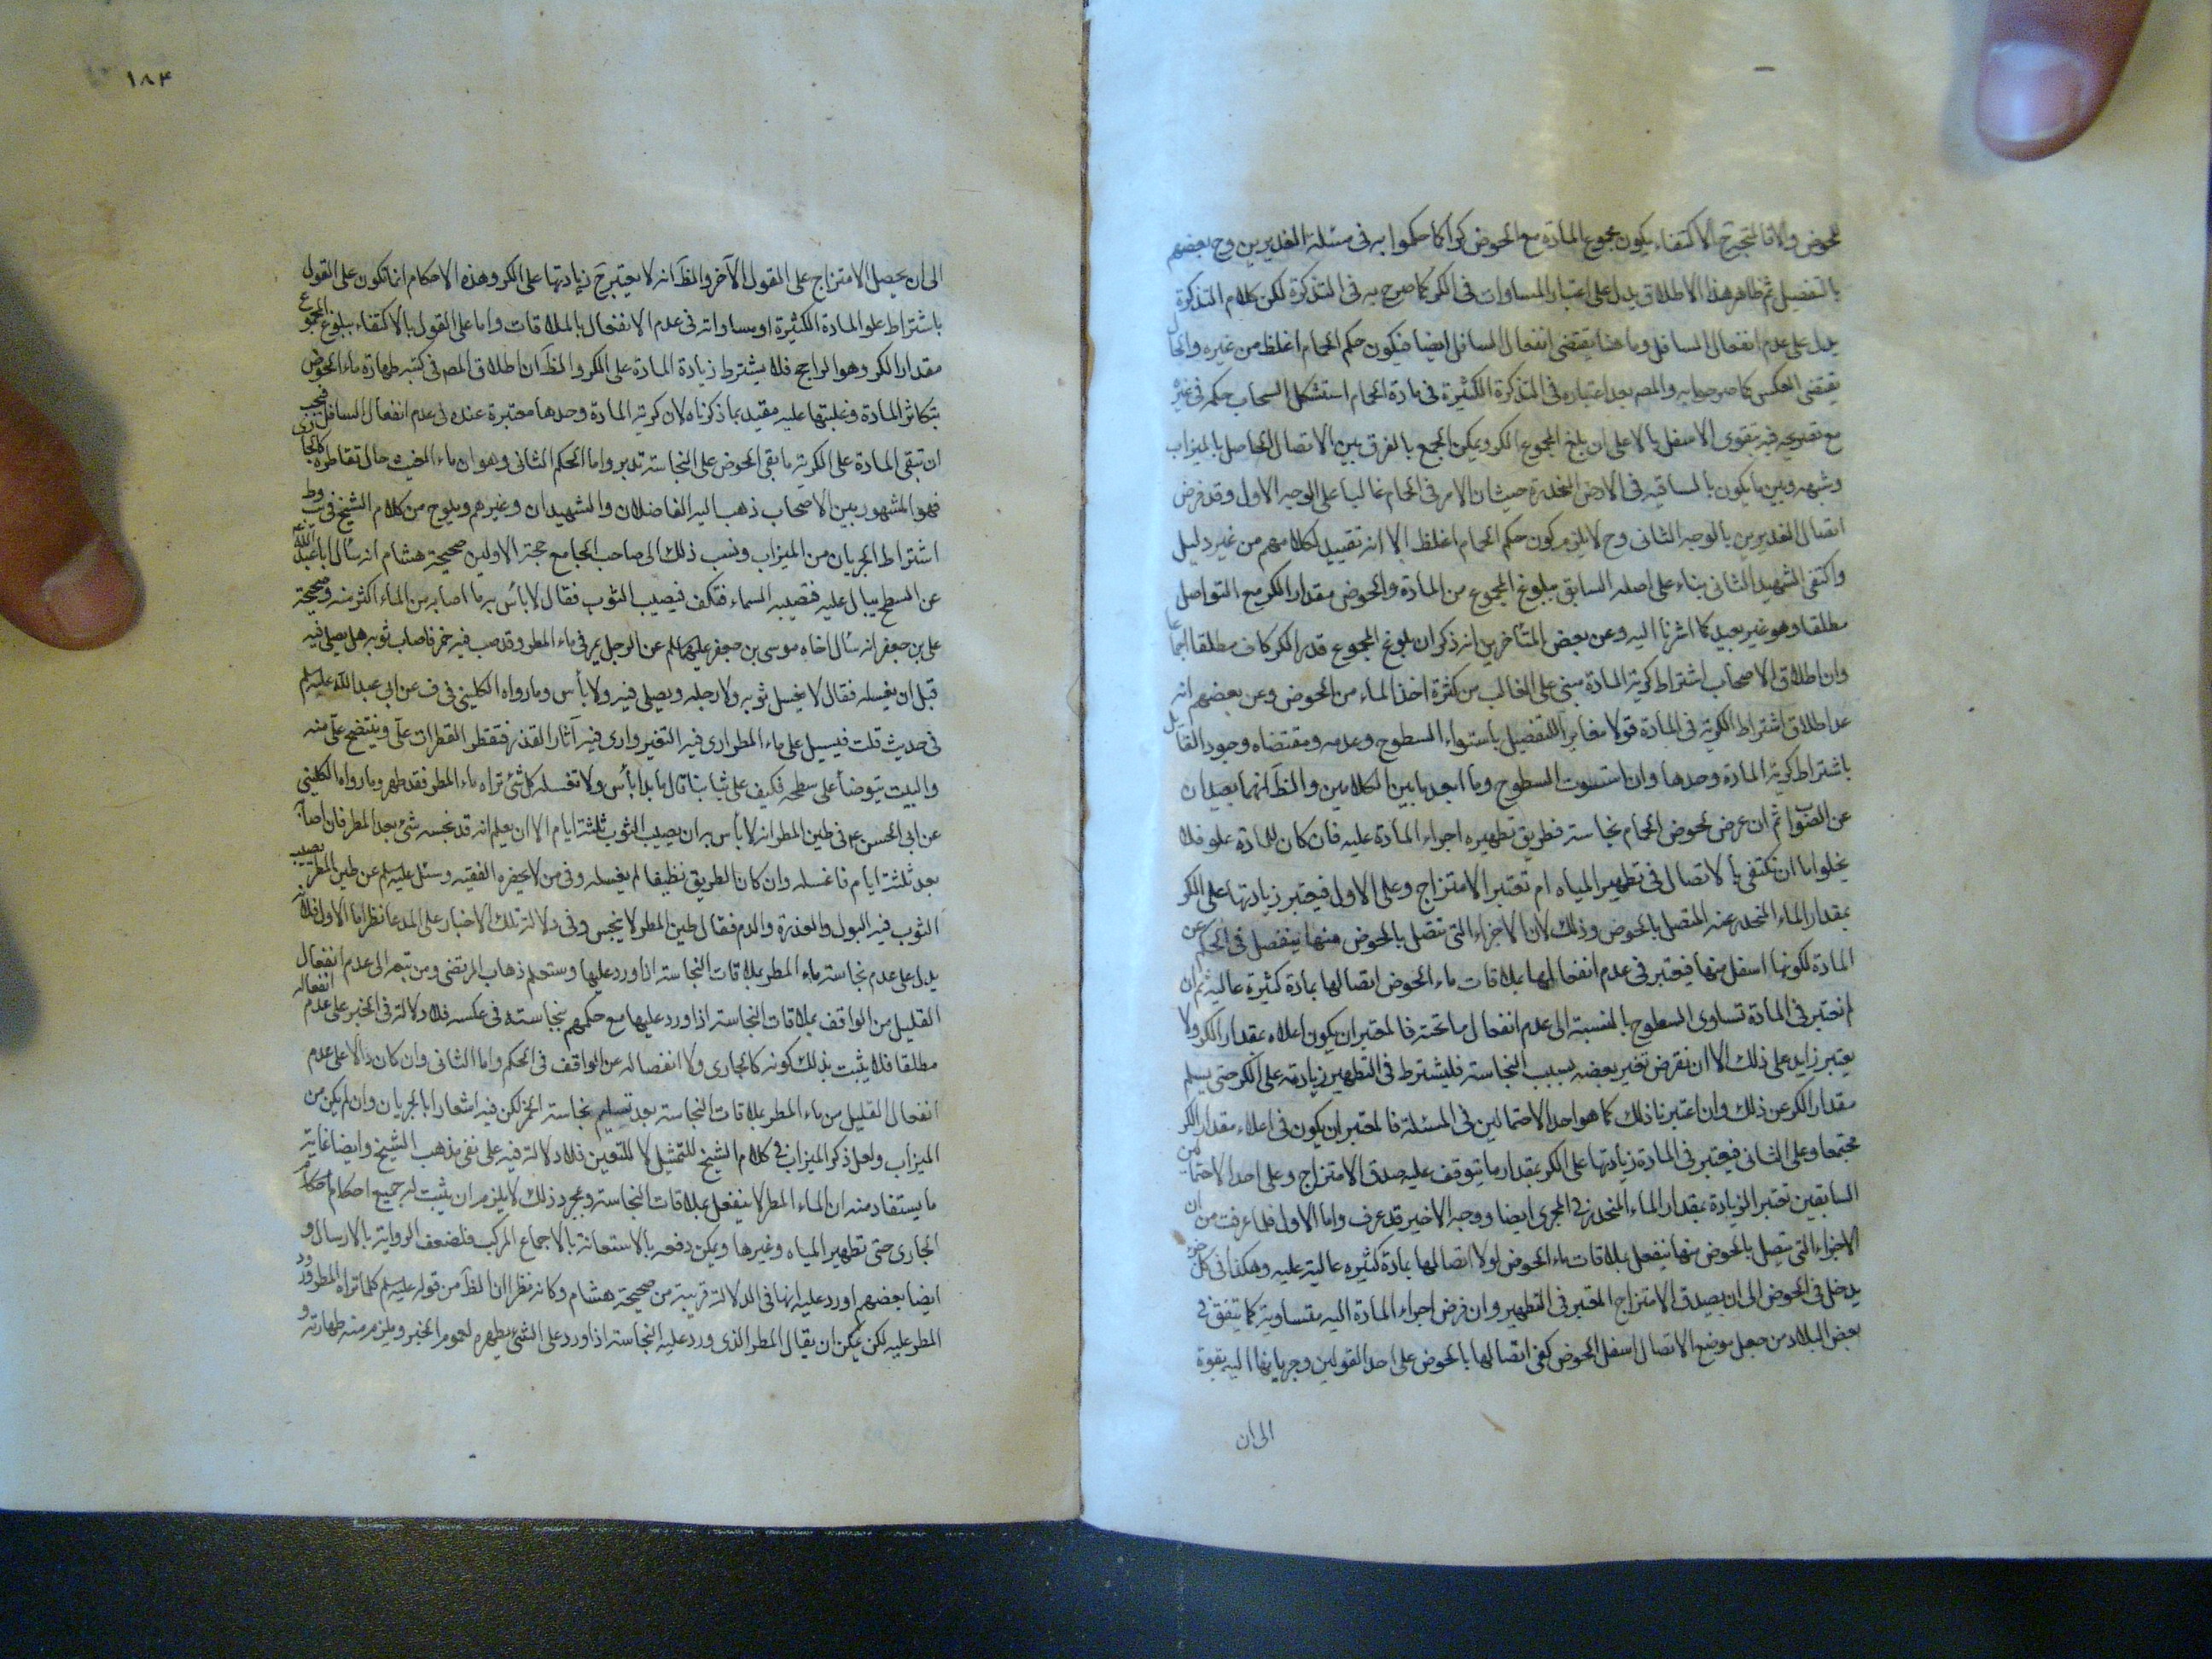 للحوض والا فالمتجه ح الاكتفاء بكون مجموع المادة مع الحوض كرا كما حكموا به فى مسئلة الغديرين وح بعضهم
بالتفصيل ثم ظاهر هذا الاطلاق يدل على اعتبار المساوات فى الكر كما صرح به فى التذكرة لكن كلام التذكرة
يدل على عدم انفعال السافل وما هنا يقتضى انفعال السافل ايضا فيكون حكم الحمام اغلظ من غيره والحال
يقتضى العكس كما صرحوا به والمصـ بعد اعتباره فى التذكرة الكثيرة فى مادة الحمام استشكل انسحاب حكم فى غيره
مع تصريحه فيه بتقوى الاسفل بالاعلى ان بلغ المجموع الكر ويمكن الجمع بالفرق بين الاتصال الحاصل بالميزاب
وشبهه وبين ما يكون بالساقية فى الارض المنحدرة حيث ان الامر فى الحمام غالبا على الوجه الاول وقد فرض
اتصال الغديرين بالوجه الثانى وح لا يلزم كون حكم الحمام اغلظ الا انه تقييد لكلامهم من غير دليل
واكتفى الشهيد الثانى بناء على اصله السابق ببلوغ المجموع من المادة والحوض مقدار الكر مع التواصل
مطلقا وهو غير بعيد كما اشرنا اليه وعن بعض المتأخرين انه ذكر ان بلوغ المجموع قدر الكر كاف مطلقا اجماعا
وان اطلاق الاصحاب اشتراط كرية المادة مبنى على الغالب من كثرة اخذ الماء من الحوض وعن بعضهم انه
عد اطلاق اشتراط الكرية فى المادة قولا مغايرا للتفصيل باستواء السطوح وعدمه ومقتضاه وجود القايل
باشتراط كرية المادة وحدها وان استوت السطوح وما ابعد ما بين الكلامين والظَ انهما بعيدان
عن الصواب ثم ان عرض لحوض الحمام نجاسة فطريق تطهيره اجراء المادة عليه فان كان للمادة علو فلا
يخلو اما ان نكتفى بالاتصال فى تطهير المياه ام نعتبر الامتزاج وعلى الاول فيعتبر زيادتها على الكر
بمقدار الماء المنحدر عنه المتصل بالحوض وذلك لان الاجزاء التى تتصل بالحوض منها ينفصل فى الحكم عن
المادة لكونها اسفل منها فيعتبر فى عدم انفعالها بملاقات ماء الحوض اتصالها بمادة كثيرة عالية ثم ان
لم نعتبر فى المادة تساوى السطوح بالنسبة الى عدم انفعال ما تحته فالمعتبر ان يكون اعلاه بمقدار الكر ولا
يعتبر زايد على ذلك الا ان نفرض تغير بعضه بسبب النجاسة فليشترط فى التطهير زيادته على الكر حتى يسلم
مقدار الكر عن ذلك وان اعتبرنا ذلك كما هو احد الاحتمالين فى المسئلة فالمعتبر ان يكون فى اعلاه مقدار الكر
مجتمعا وعلى الثانى فيعتبر فى المادة زيادتها على الكر بمقدار ما يتوقف عليه صدق الامتزاج وعلى احد الاحتمالين
السابقين تعتبر الزيادة بمقدار الماء المنحدر فى المجرى ايضا ووجه الاخير قد عرف واما الاول فلما عرفت من ان
الاجزاء التى يتصل بالحوض منها ينفعل بملاقات ماء الحوض لولا اتصالها بمادة كثيرة عالية عليه وهكذا فى كل جزء
يدخل فى الحوض الى ان يصدق الامتزاج المعتبر فى التطهير وان فرض اجراء المادة اليه متساوية كما يتفق فى
بعض البلاد من جعل موضع الاتصال اسفل الحوض كفى اتصالها بالحوض على احد القولين وجريانها اليه بقوة
الى ان
١٨۴
الى ان يحصل الامتزاج على القول الآخر والظَ انه لا يعتبر حَ زيادتها على الكر وهذه الاحكام انما تكون على القول
باشتراط علو المادة الكثيرة او مساواته فى عدم الانفعال بالملاقات واما على القول بالاكتفاء ببلوغ المجموع
مقدار الكر وهو الراجح فلا يشترط زيادة المادة على الكر والظَ ان اطلاق المصـ فى كتبه طهارة ماء الحوض
بتكاثر المادة وغلبتها عليه مقيد بما ذكرناه لان كرية المادة وحدها معتبرة عنده فى عدم انفعال السافل فيجب
ان تبقى المادة على الكرية ما بقى الحوض على النجاسة تدبر واما الحكم الثانى وهو ان ماء الغيث حال تقاطره كالجارى
فهو المشهور بين الاصحاب ذهب اليه الفاضلان والشهيدان وغيرهم ويلوح من كلام الشيخ فى يب وط
اشتراط الجريان من الميزاب ونسب ذلك الى صاحب الجامع حجة الاولين صحيحة هشام انه سأل ابا عبد الله
عن السطح يبال عليه فتصيبه السماء فتكف فيصيب الثوب فقال لا بأس به ما اصابه من الماء اكثر منه وصحيحة
على بن جعفر انه سأل اخاه موسى بن جعفر عليهما السلم عن الرجل يمر فى ماء المطر وقد صب فيه خمر فاصاب ثوبه هل يصلى فيه
قبل ان يغسله فقال لا يغسل ثوبه ولا رجله ويصلى فيه ولا بأس وما رواه الكلينى فى فى عن ابى عبد الله عليه السلم
فى حديث قلت فيسيل على ماء المطر ارى فيه التغير وارى فيه آثار القذر فتقطر القطرات علىّ وينتضح علىّ منه
والبيت يتوضأ على سطحه فكيف على ثيابنا قال ما بذا بأس ولا تغسله كل شئ تراه ماء المطر فقد طهر وما رواه الكلينى
عن ابى الحسن ع فى طين المطر انه لا بأس به ان يصيب الثوب ثلثة ايام الا ان يعلم انه قد نجسه شئ بعد المطر فان اصابه
بعد ثلثة ايام فاغسله وان كان الطريق نظيفا لم يغسله وفى من لا يحضره الفقيه وسئل عليه السلم عن طين المطر يصيب
الثوب فيه البول والعذرة والدم فقال طين المطر لا ينجس وفى دلالة تلك الاخبار على المدعا نظر اما الاول فلانه
يدل على عدم نجاسة ماء المطر بملاقات النجاسة اذا ورد عليها وستعلم ذهاب المرتضى ومن تبعه الى عدم انفعال
القليل من الواقف بملاقات النجاسة اذا ورد عليها مع حكمهم بنجاسته فى عكسه فلا دلالة فى الخبر على عدم انفعاله
مطلقا فلا يثبت بذلك كونه كالجارى ولا انفصاله عن الواقف فى الحكم واما الثانى وان كان دالا على عدم
انفعال القليل من ماء المطر بملاقات النجاسة بعد تسليم نجاسة الخمر لكن فيه اشعار ابا لجريان وان لم يكن من
الميزاب ولعل ذكر الميزاب فى كلام الشيخ للتمثيل لا للتعيين فلا دلالة فيه على نفى مذهب الشيخ وايضا غاية
ما يستفاد منه ان الماء المطر لا ينفعل بملاقات النجاسة وبمجرد ذلك لا يلزم ان يثبت له جميع احكام احكام
الجارى حتى تطهير المياه وغيرها ويمكن دفعه بالاستعانة بالاجماع المركب فلضعف الرواية بالارسال و
ايضا بعضهم اورد عليه انها فى الدلالة قريبة من صحيحة هشام وكانه نظر الى ان الظَ من قوله عليه السلم كلما تراه المطر ورد
المطر عليه لكن يمكن ان يقال المطر الذى ورد عليه النجاسة اذا ورد على الشئ يطهره لعموم الخبر ويلزم منه طهارته و